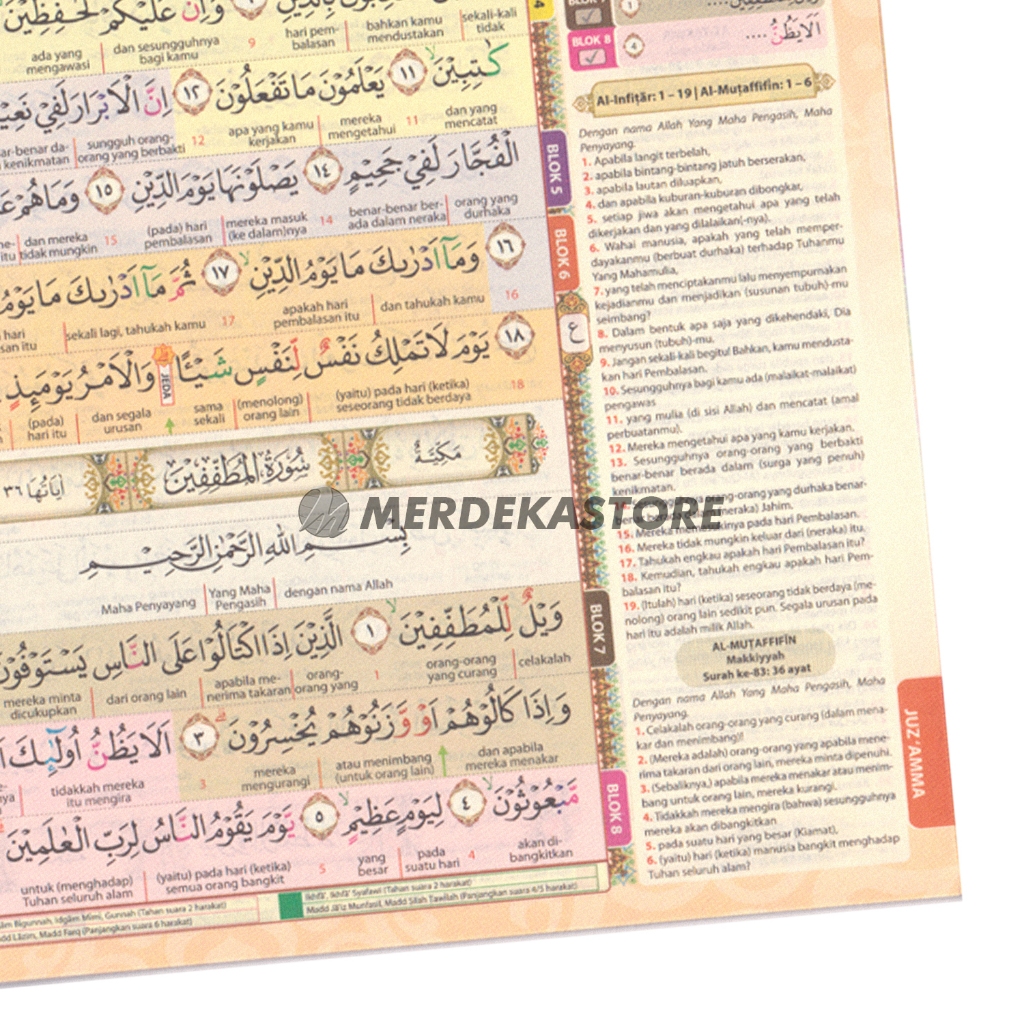 وَاِنَّ عَلَيْكُمْ لَحٰفِظِيْنَ
ada yang mengawasi
dan sesungguhnya bagi kamu
9
hari pem-balasan
bahkan kamu mendustakan
sekali-kali tidak
كَاتِبِيْنَ ۙ ١١ يَعْلَمُوْنَ مَا تَفْعَلُوْنَ ١٢ اِنَّ الْاَبْرَارَ لَفِيْ
sungguh orang-orang yang berbakti
12
apa yang kamu kerjakan
mereka mengetahui
11
dan yang mencatat
الْفُجَّارَ لَفِيْ جَحِيْمٍ ١٤ يَصْلَوْنَهَا يَوْمَ الدِّيْنِ ١٥ وَمَا هُمْ
dan mereka tidak mungkin
15
(pada) hari pembalasan
mereka masuk (ke dalam)nya
14
benar-benar ber-ada dalam neraka
orang yang durhaka
١٦ وَمَآ اَدْرٰىكَ مَا يَوْمُ الدِّيْنِ ۙ ١٧ ثُمَّ مَآ اَدْرٰىكَ مَا يَوْمُ
sekali lagi, tahukah kamu
17
apakah hari pembalasan itu
dan tahukah kamu
16
١٨ يَوْمَ لَا تَمْلِكُ نَفْسٌ لِّنَفْسٍ شَيْـًٔا ۗ وَالْاَمْرُ يَوْمَىِٕذٍ
JEDA
(pada) hari itu
dan segala urusan
sama sekali
(menolong) orang lain
(yaitu) pada hari (ketika) seseorang tidak berdaya
18
اٰيَاتُهَا ٣٦
سُوْرَةُ الْمُطَفِّفِيْنَ
مَكِّيَّةٌ
بِسْمِ اللّٰهِ الرَّحْمٰنِ الرَّحِيْمِ
Maha Penyayang
Yang Maha Pengasih
dengan nama Allah
وَيْلٌ لِّلْمُطَفِّفِيْنَ ۙ ١ الَّذِيْنَ اِذَا اكْتَالُوْا عَلَى النَّاسِ يَسْتَوْفُوْنَ
mereka minta dicukupkan
dari orang lain
apabila me-nerima takaran
orang-orang yang
1
orang-orang yang curang
celakalah
وَاِذَا كَالُوْهُمْ اَوْ وَّزَنُوْهُمْ يُخْسِرُوْنَ ٣ اَلَا يَظُنُّ اُولٰۤىِٕكَ
tidakkah mereka itu mengira
3
mereka mengurangi
atau menimbang (untuk orang lain)
dan apabila mereka menakar
مَّبْعُوْثُوْنَ ۙ ٤ لِيَوْمٍ عَظِيْمٍ ۙ ٥ يَّوْمَ يَقُوْمُ النَّاسُ لِرَبِّ الْعٰلَمِيْنَ
untuk (menghadap) Tuhan seluruh alam
(yaitu) pada hari (ketika) semua orang bangkit
5
yang besar
pada suatu hari
4
akan di-bangkitkan
Idgām Mīmī, Gunnah (Tahan suara 2 harakat)
Madd Lāzim, Madd Farq (Panjangkan suara 6 harakat)
Ikhfā', Ikhfā' Syafawī (Tahan suara 2 harakat)
Madd Jā'iz Munfaṣil, Madd Ṣilah Ṭawīlah (Panjangkan suara 4/5 harakat)
BLOK 5
BLOK 6
ع
BLOK 7
BLOK 8
BLOK 8
اَلَا يَظُنُّ ....
Al-Infiṭār: 1 – 19 | Al-Muṭaffifīn: 1 – 6
Dengan nama Allah Yang Maha Pengasih, Maha
Penyayang.
1. Apabila langit terbelah,
2. apabila bintang-bintang jatuh berserakan,
3. apabila lautan diluapkan,
4. dan apabila kuburan-kuburan dibongkar,
5. setiap jiwa akan mengetahui apa yang telah
dikerjakan dan yang dilalaikan(-nya).
6. Wahai manusia, apakah yang telah memper-
dayakanmu (berbuat durhaka) terhadap Tuhanmu
Yang Mahamulia,
7. yang telah menciptakanmu lalu menyempurnakan
kejadianmu dan menjadikan (susunan tubuh)-mu
seimbang?
8. Dalam bentuk apa saja yang dikehendaki, Dia
menyusun (tubuh)-mu.
9. Jangan sekali-kali begitu! Bahkan, kamu mendusta-
kan hari Pembalasan.
10. Sesungguhnya bagi kamu ada (malaikat-malaikat)
pengawas
11. yang mulia (di sisi Allah) dan mencatat (amal
perbuatanmu).
12. Mereka mengetahui apa yang kamu kerjakan.
13. Sesungguhnya orang-orang yang berbakti
benar-benar berada dalam (surga yang penuh)
kenikmatan.
orang-orang yang durhaka benar-
(neraka) Jahim.
15. Mereka memasukinya pada hari Pembalasan.
16. Mereka tidak mungkin keluar dari (neraka) itu.
17. Tahukah engkau apakah hari Pembalasan itu?
18. Kemudian, tahukah engkau apakah hari Pem-
balasan itu?
19. (Itulah) hari (ketika) seseorang tidak berdaya (me-
nolong) orang lain sedikit pun. Segala urusan pada
hari itu adalah milik Allah.
AL-MUṬAFFIFĪN
Makkiyyah
Surah ke-83: 36 ayat
Dengan nama Allah Yang Maha Pengasih, Maha
Penyayang.
1. Celakalah orang-orang yang curang (dalam mena-
kar dan menimbang)!
2. (Mereka adalah) orang-orang yang apabila mene-
rima takaran dari orang lain, mereka minta dipenuhi.
3. (Sebaliknya,) apabila mereka menakar atau menim-
bang untuk orang lain, mereka kurangi.
4. Tidakkah mereka mengira (bahwa) sesungguhnya
mereka akan dibangkitkan
5. pada suatu hari yang besar (Kiamat),
6. (yaitu) hari (ketika) manusia bangkit menghadap
Tuhan seluruh alam?
JUZ 'AMMA
MERDEKASTORE